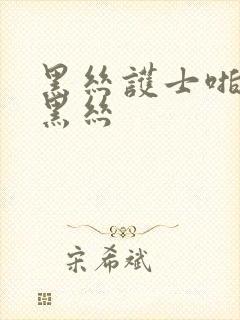 黑丝護士啪
黑丝
宋希斌